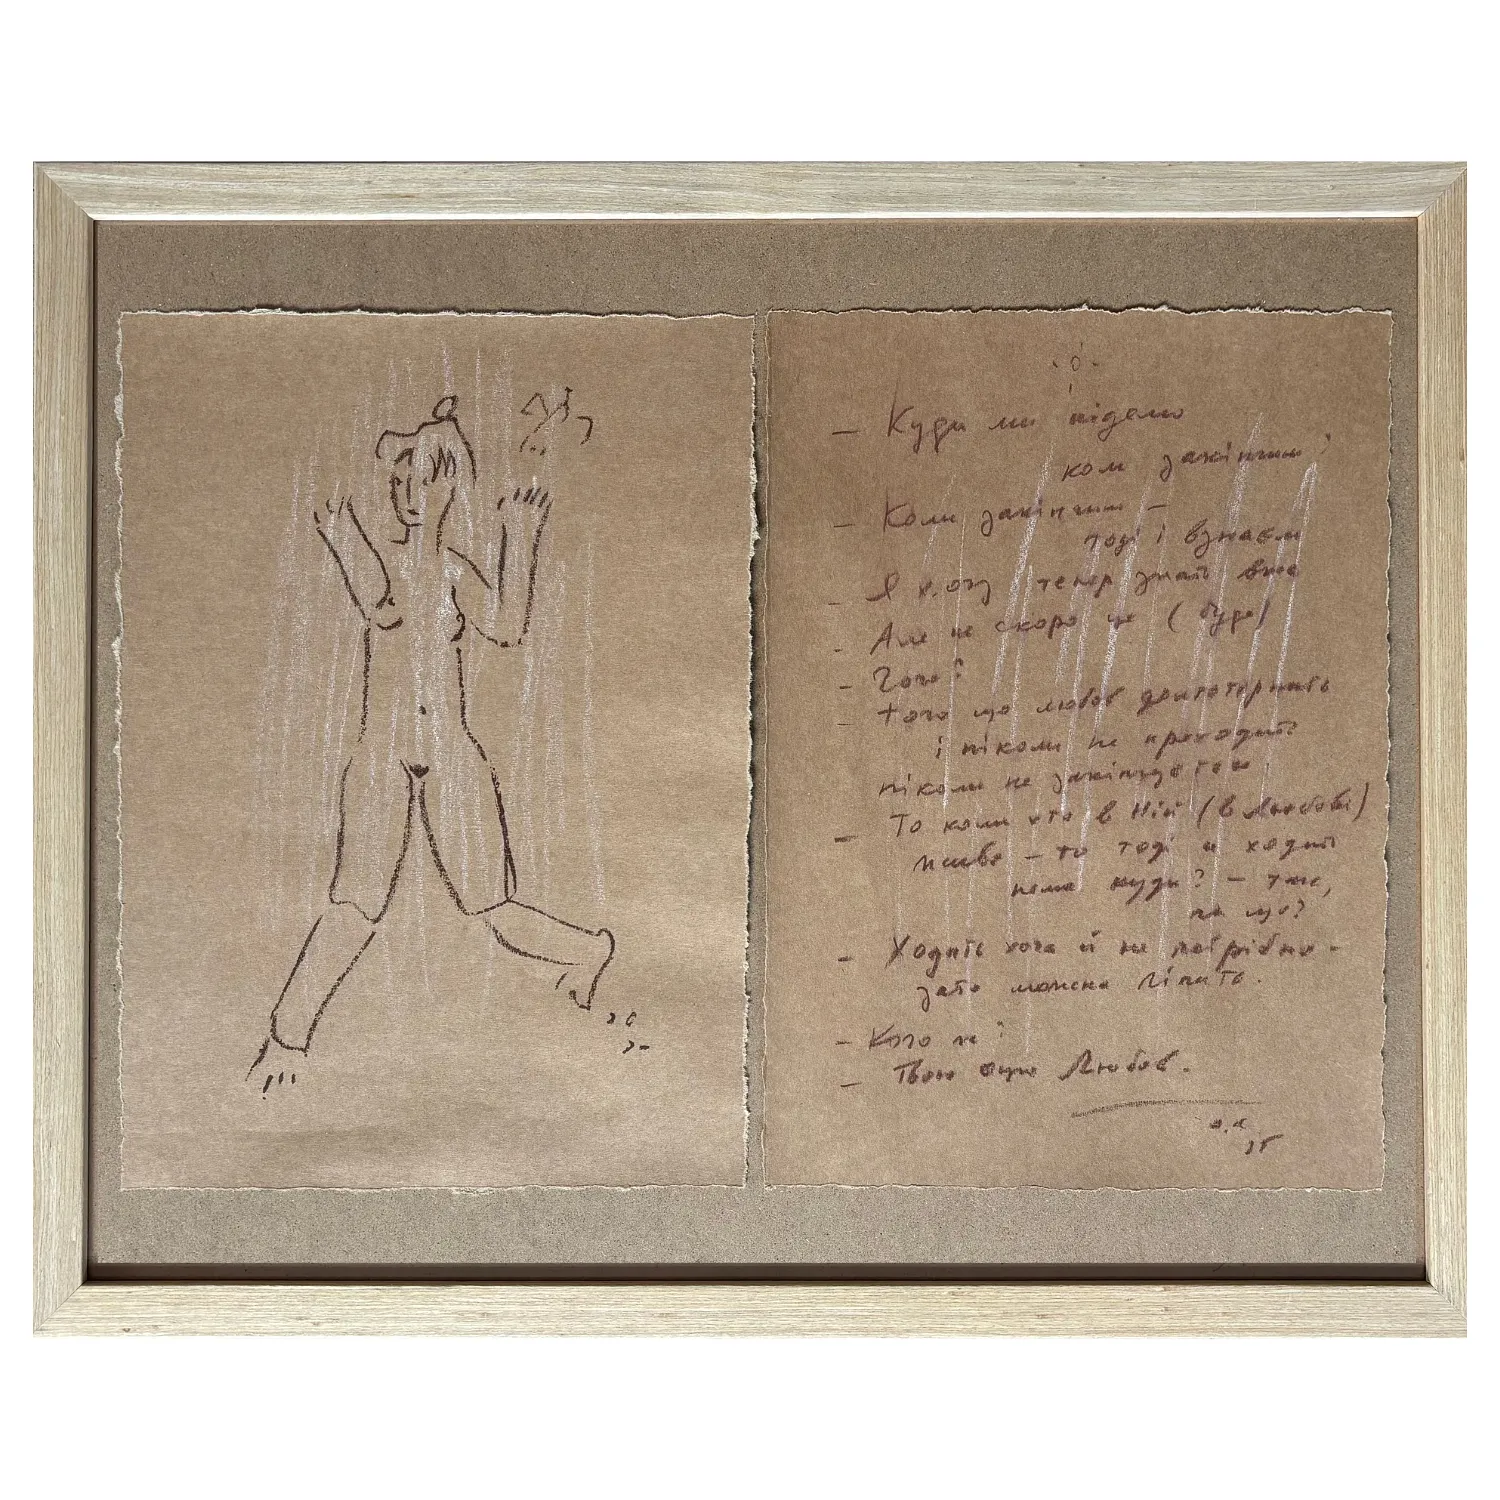 – Куди ми підемо
коли закінчим?
– Коли закінчим –
тоді і взнаєм
– Я хочу тепер знать вже
– Але не скоро це (буде)
– Чого?
– Того що любов довготерпить
і ніколи не проходить
ніколи не закінчується
– То коли хто в Ній (в Любові)
живе – то тоді й ходить
нема куди? – так,
по що?
– Ходить хоча й не потрібно –
зато можна ліпить.
– Кого ж?
– Твою Любов.